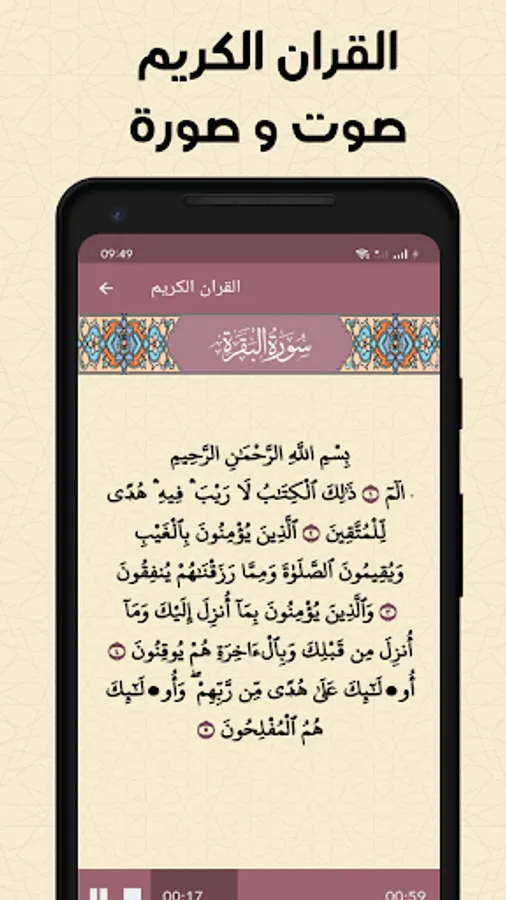 القران الكريم
صوت و صورة
09:49
القران الكريم
سُورَةُ البَقَرَة
بِسْمِ اللَّهِ الرَّحْمَٰنِ الرَّحِيمِ
الٓمٓ ۝١ ذَٰلِكَ ٱلْكِتَٰبُ لَا رَيْبَ ۛ فِيهِ ۛ هُدًى
لِّلْمُتَّقِينَ ۝٢ ٱلَّذِينَ يُؤْمِنُونَ بِٱلْغَيْبِ
وَيُقِيمُونَ ٱلصَّلَوٰةَ وَمِمَّا رَزَقْنَٰهُمْ يُنفِقُونَ
۝٣ وَٱلَّذِينَ يُؤْمِنُونَ بِمَآ أُنزِلَ إِلَيْكَ وَمَآ
أُنزِلَ مِن قَبْلِكَ وَبِٱلْءَاخِرَةِ هُمْ يُوقِنُونَ ۝٤
أُو۟لَٰٓئِكَ عَلَىٰ هُدًى مِّن رَّبِّهِمْ ۖ وَأُو۟لَٰٓئِكَ
هُمُ ٱلْمُفْلِحُونَ ۝٥
00:17 00:59